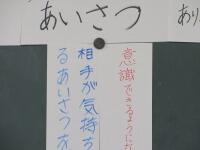 あいさつ
あり
意識できるように
相手が気持ち
るあいさつを